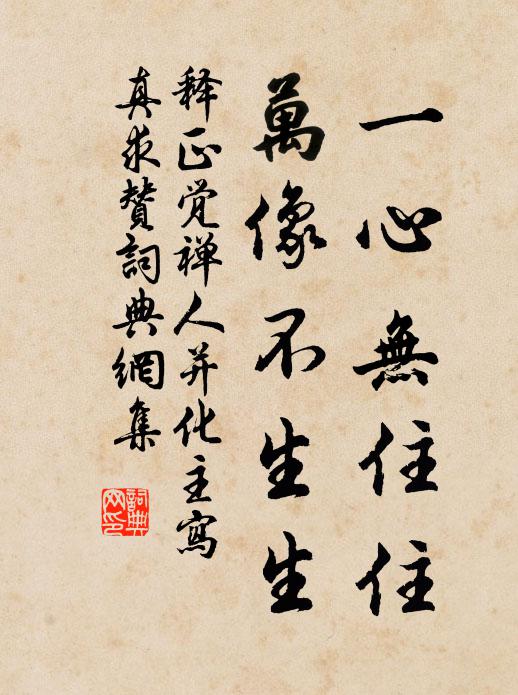 一心無住住
萬像不生生
释正觉禅人并化主寫
真求賛詞典網集
詞典網印